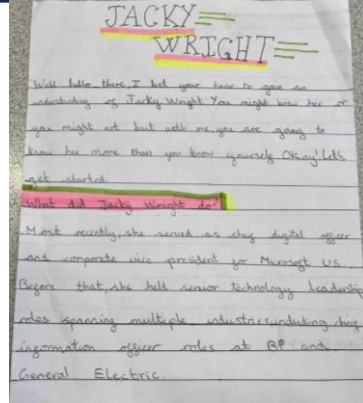 JACKY
WRIGHT
Well hello there I bet your here to gain an
understanding of Jacky Wright You might know her or
you might not but with me, you are going to
know her more than you know yourself Okay! Let's
get started.
What did Jacky Wright do?
Most recently, she served as chief digital officer
and corporate vice president for Microsoft US.
Before that, she held senior technology leadership
roles spanning multiple industries including chief
information officer roles at BP and
General Electric.